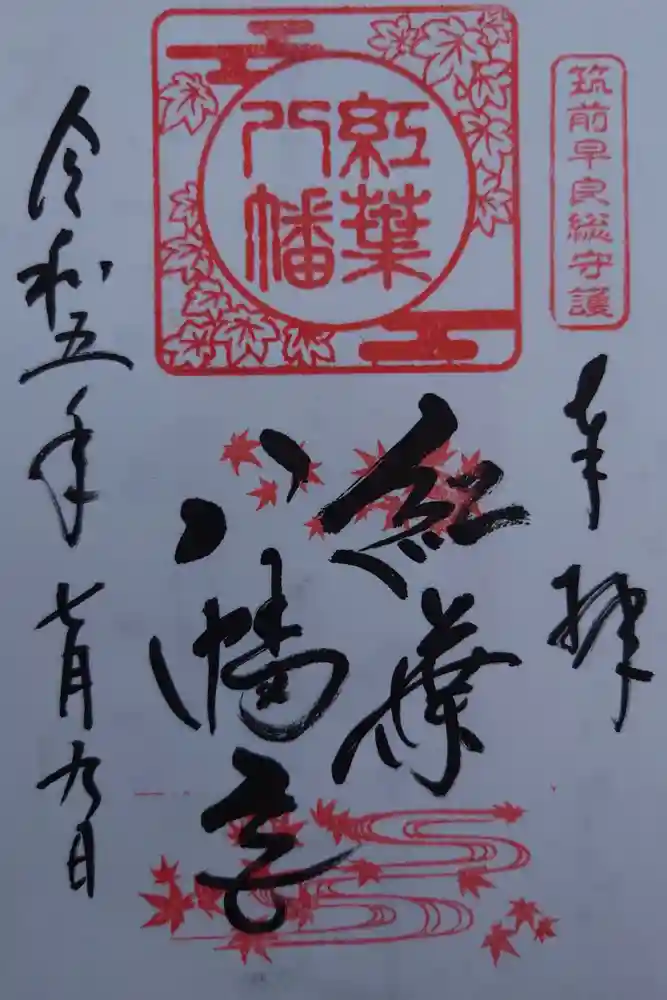 筑前早良総守護
奉拝
紅葉
八幡
紅葉
八幡宮
令和五年
七月九日